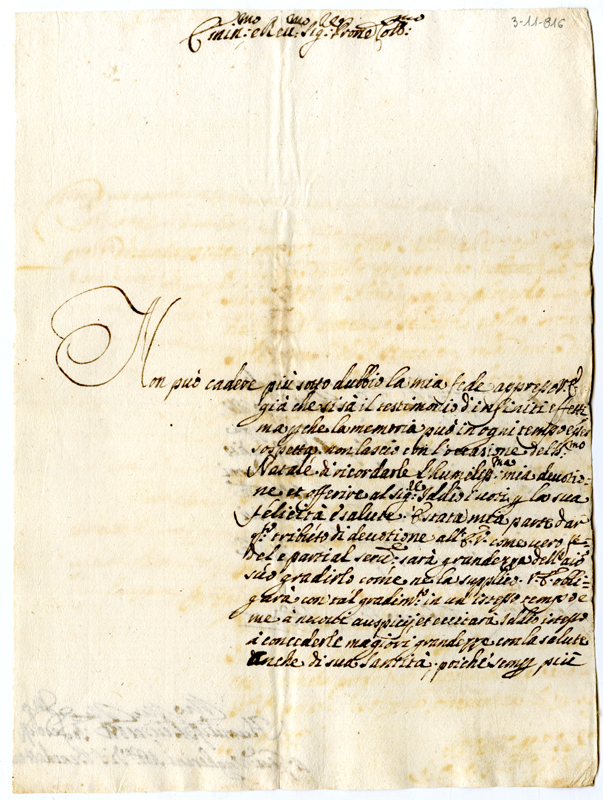 3-11-816
Emin:mo e Reu:mo Sig:re Prone Coll:mo
Non può cadere più sotto dubbio la mia fede appresso V.E.
già che si sà il testimonio d'infiniti effetti
ma perche la memoria può in ogni tempo esser
sospetta non lascio con l'occasione del S.mo
Natale di ricordarle l'humiliss:ma mia devotio=
ne et offerire al sig:re Iddio i voti p la sua
felicità e salute. È stata mia parte dar
q.to tributo di devotione all'E.V. come vero fe=
del e partial seru:re sarà grandezza dell'
suo gradirlo come ne la supplico. V.E. obli=
garà con tal gradim.to in un istesso tempo
me à et eccitarà Iddio istesso
à concederle magiori grandezze con la salute
anche di sua Santità. poiche semp più